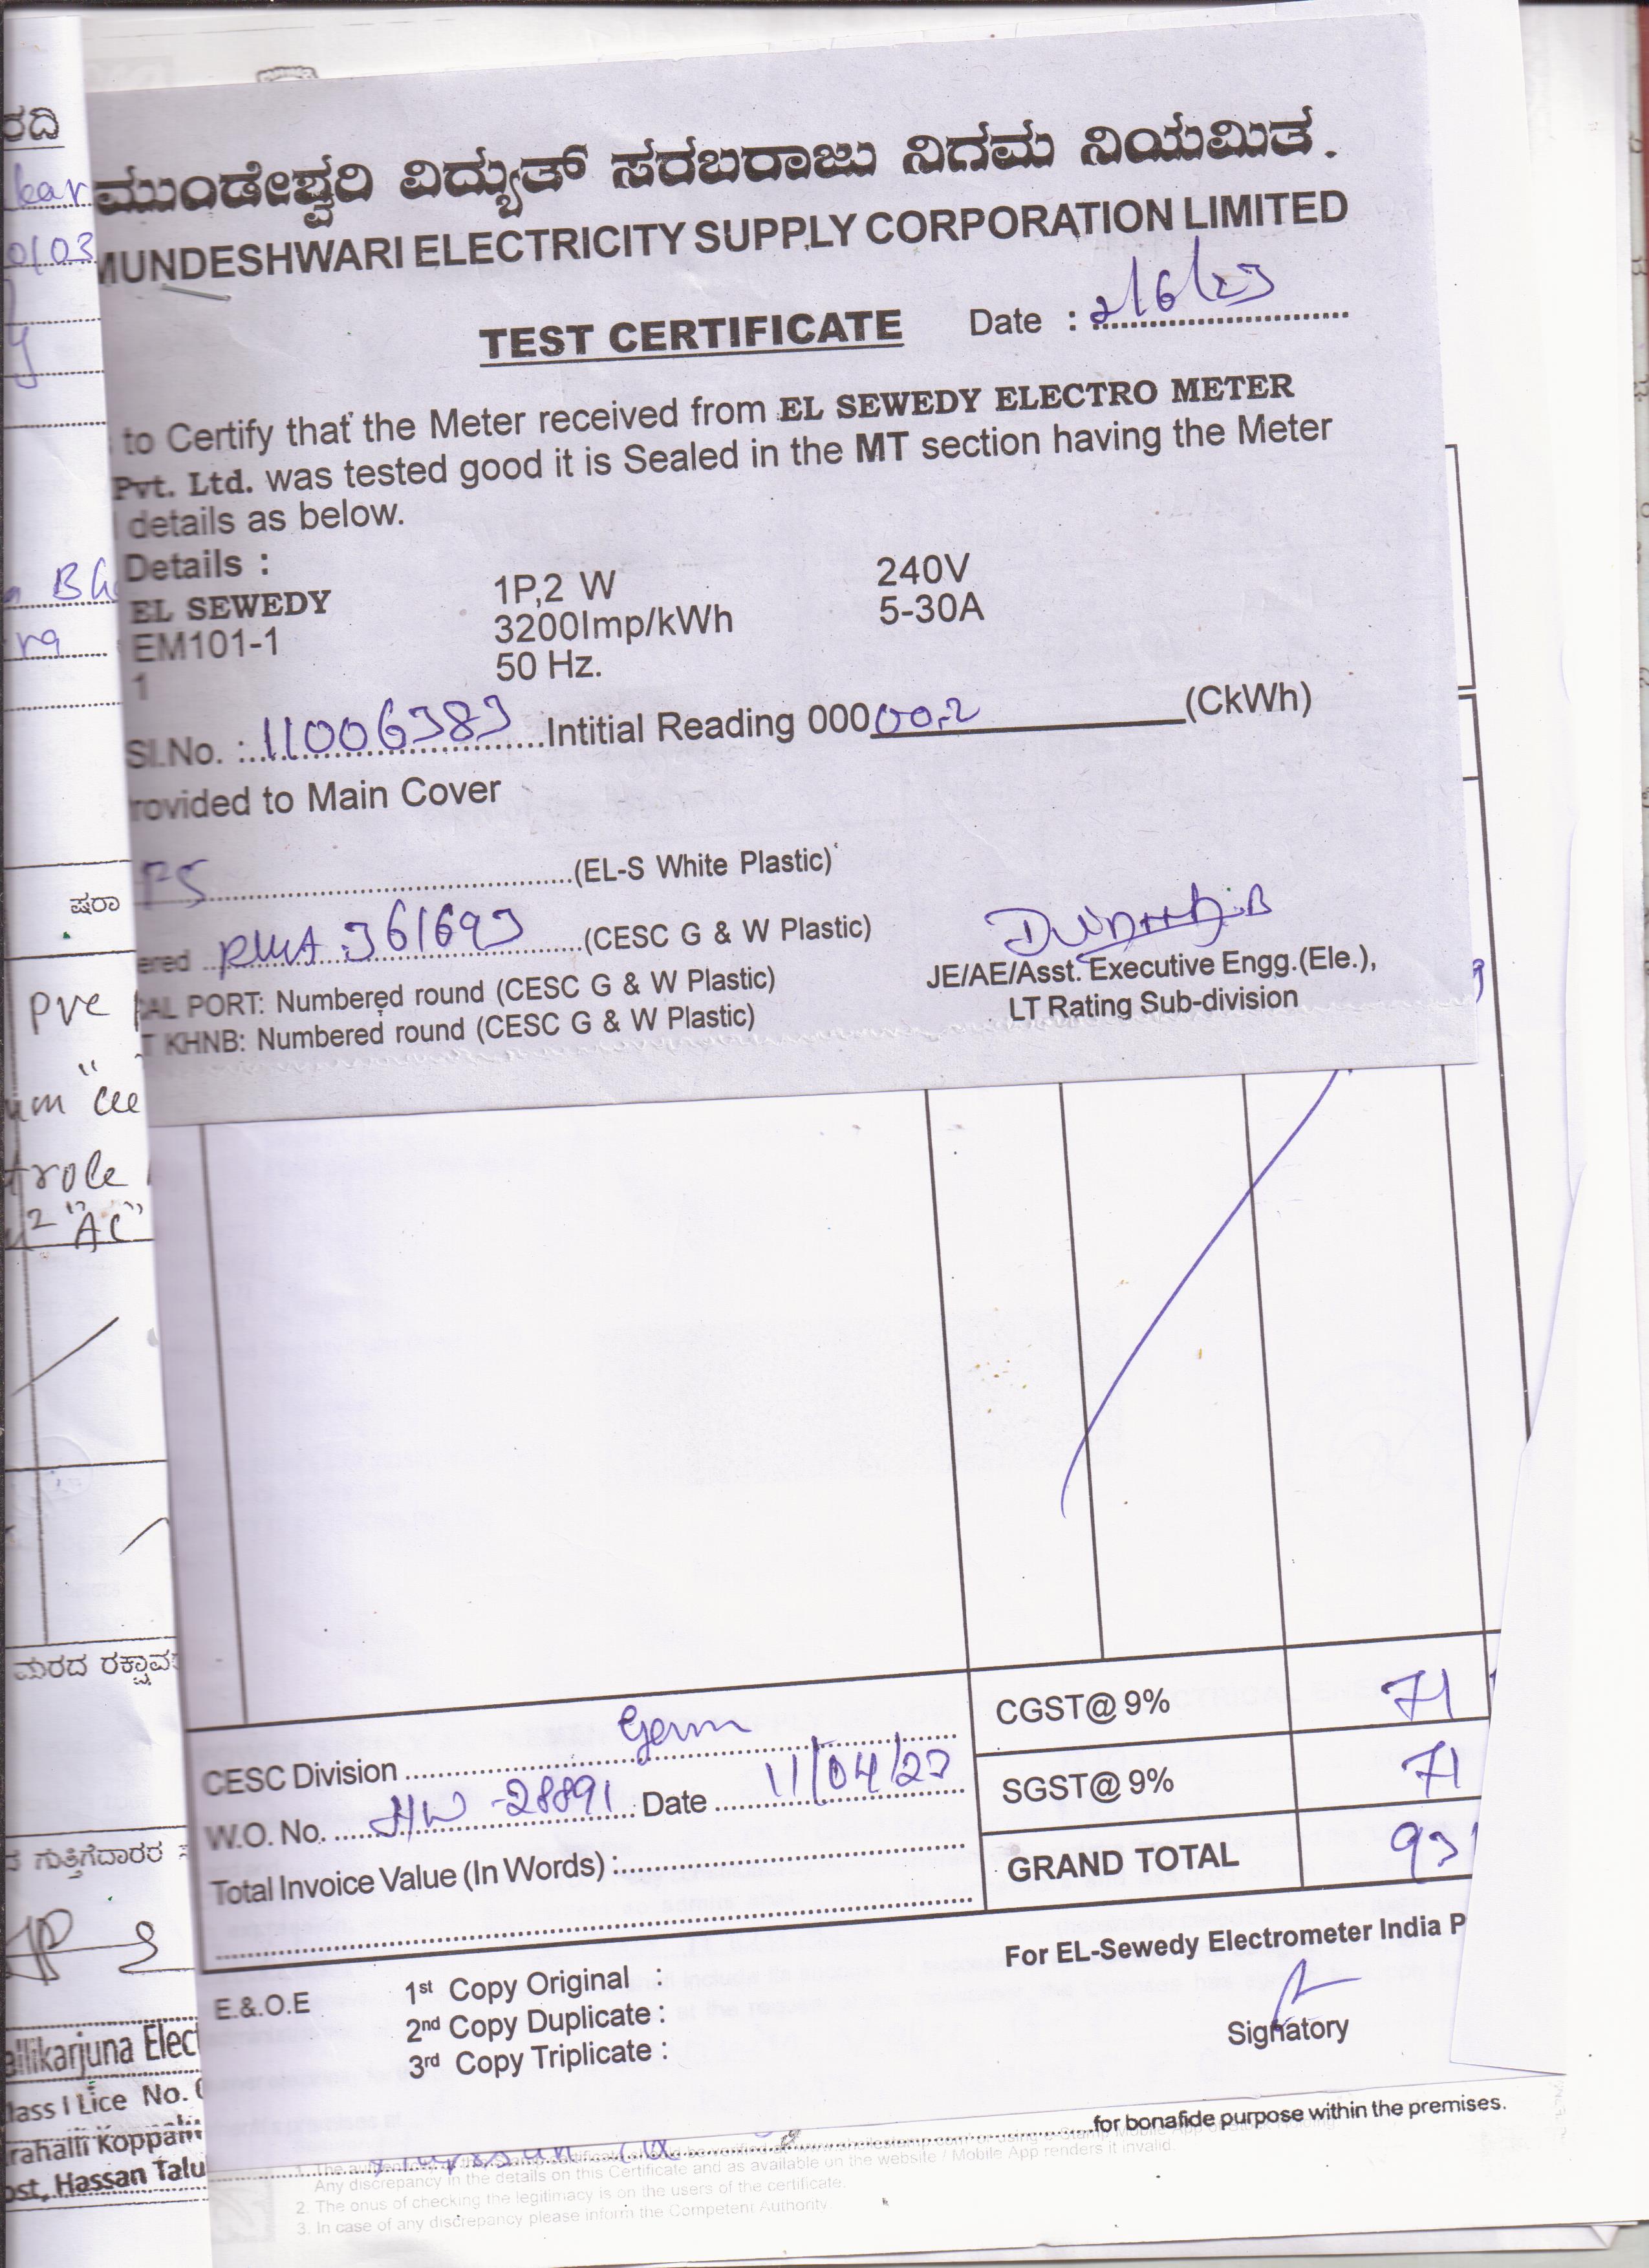 ಮುಂಡೇಶ್ವರಿ ವಿದ್ಯುತ್ ಸರಬರಾಜು ನಿಗಮ ನಿಯಮಿತ.
MUNDESHWARI ELECTRICITY SUPPLY CORPORATION LIMITED
TEST CERTIFICATE Date : 2/6/23
to Certify that the Meter received from EL SEWEDY ELECTRO METER
Pvt. Ltd. was tested good it is Sealed in the MT section having the Meter
details as below.
Details :
EL SEWEDY 1P,2 W 240V
EM101-1 3200Imp/kWh 5-30A
1 50 Hz.
Sl.No. : 11006383 Intitial Reading 00000.2 (CkWh)
rovided to Main Cover
(EL-S White Plastic)
ered 361693 (CESC G & W Plastic)
CAL PORT: Numbered round (CESC G & W Plastic)
T KHNB: Numbered round (CESC G & W Plastic)
JE/AE/Asst. Executive Engg.(Ele.),
LT Rating Sub-division
CGST@ 9% 71
SGST@ 9% 71
GRAND TOTAL 93
CESC Division
W.O. No. HW -28891 Date 11/04/23
Total Invoice Value (In Words) :
For EL-Sewedy Electrometer India P
E.&.O.E
1st Copy Original :
2nd Copy Duplicate :
3rd Copy Triplicate :
Signatory
for bonafide purpose within the premises.
Any discrepancy in the details on this Certificate and as available on the website / Mobile App renders it invalid.
2. The onus of checking the legitimacy is on the users of the certificate.
3. In case of any discrepancy please inform the Competent Authority.
ರದಿ
kar
0/03
ಷರಾ
pvc
trole
"AC"
ಮರದ
ಗುತ್ತಿಗೆದಾರರ
allikarjuna Elect
lass I Lice No.
rahalli Koppalu
ost, Hassan Talu